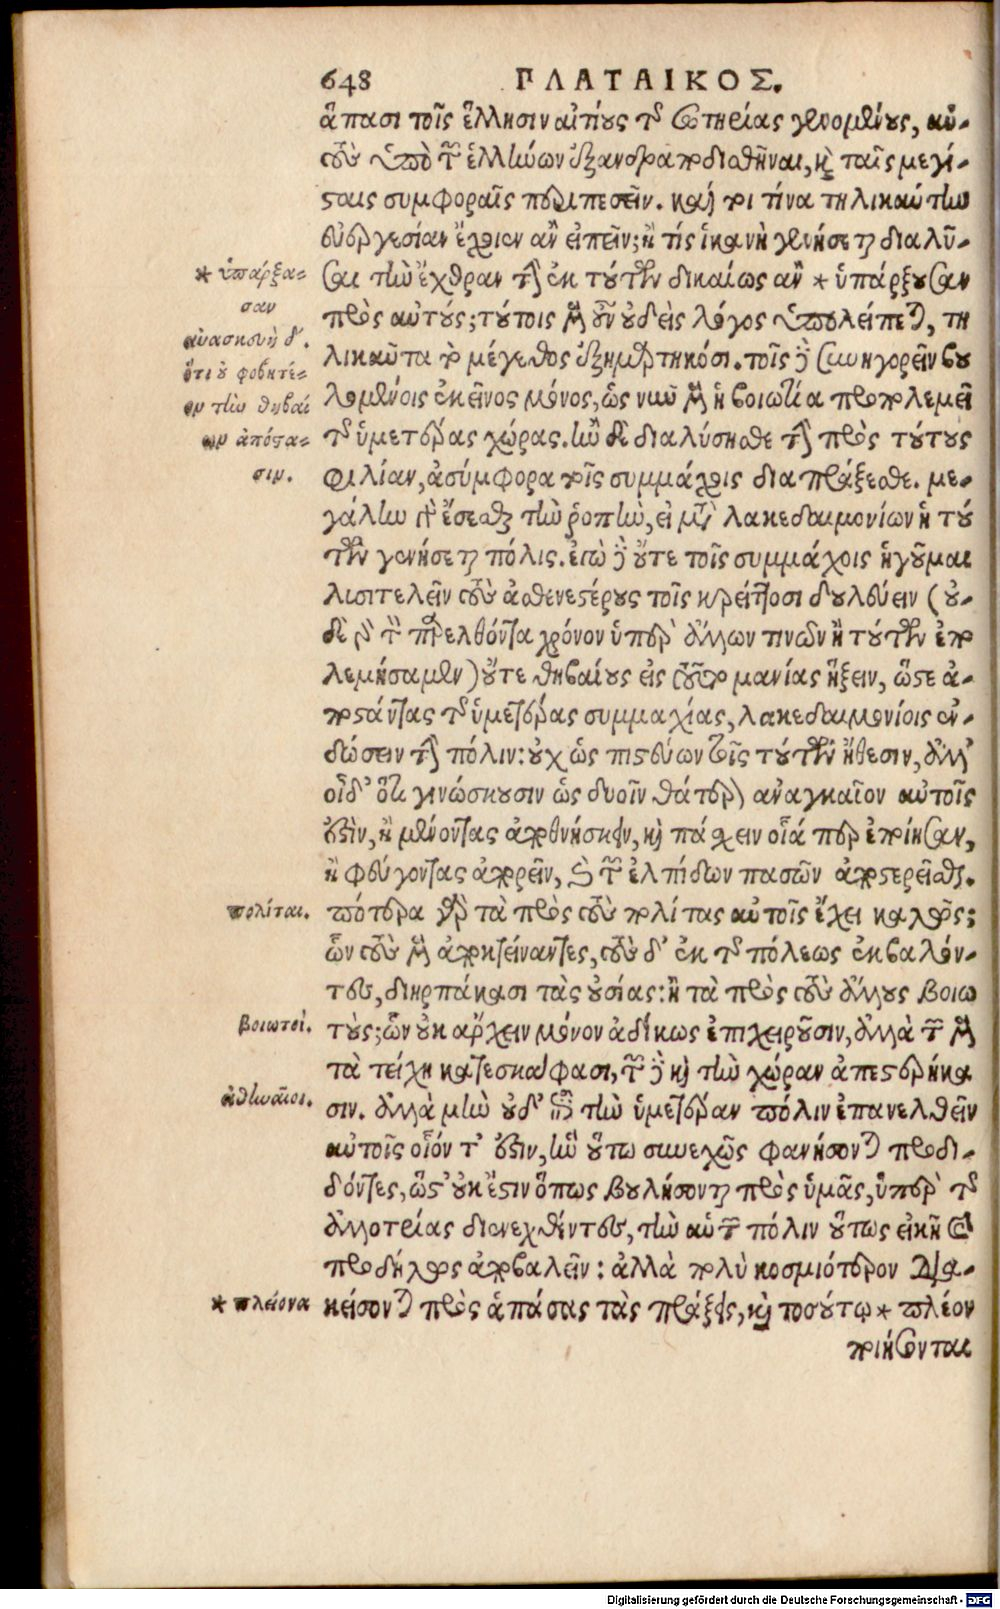 648 ΠΛΑΤΑΙΚΟΣ.
ἅπασι τοῖς ἕλλησιν αἰτίους τῆς σωτηρίας γενομένους, αὐ-
τοὺς ὑπὸ τῶν ἑλλήνων ἐξανδραποδισθῆναι, καὶ ταῖς μεγί-
σταις συμφοραῖς περιπεσεῖν. καίτοι τίνα τηλικαύτην
εὐεργεσίαν ἔχοιεν ἂν εἰπεῖν; ἢ τίς ἱκανὴ γενήσεται διαλῦ-
* ὑπαρξα-
σαι τὴν ἔχθραν τὴν ἐκ τούτων δικαίως ἂν * ὑπάρξουσαν
σαν
πρὸς αὐτούς; τούτοις μὲν οὖν οὐδεὶς λόγος ὑπολείπεται, τη
ἀνασκευὴ δ'.
λικαῦτα τὸ μέγεθος ἐξημαρτηκόσι. τοῖς δὲ συνηγορεῖν βου
ὅτι οὐ φοβητέ-
λομένοις ἐκεῖνος μόνος, ὡς νῦν μὲν ἡ βοιωτία προπολεμεῖ
ον τὴν θηβαί
τῆς ὑμετέρας χώρας. ἢν δὲ διαλύσησθε τὴν πρὸς τούτους
ων ἀπόστα-
φιλίαν, ἀσύμφορα τοῖς συμμάχοις διαπράξεσθε. με-
σιν.
γάλην γὰρ ἔσεσθαι τὴν ῥοπὴν, εἰ μετὰ λακεδαιμονίων ἡ τού
των γενήσεται πόλις. ἐγὼ δὲ οὔτε τοῖς συμμάχοις ἡγοῦμαι
λισιτελεῖν τοὺς ἀσθενεστέρους τοῖς κρείττοσι δουλεύειν (οὐ-
δὲ γὰρ τὸν παρελθόντα χρόνον ὑπὲρ ἄλλων τινῶν ἢ τούτων ἐπο
λεμήσαμεν) οὔτε θηβαίους εἰς τοῦτο μανίας ἥξειν, ὥστε ἀ-
ποστάντας τῆς ὑμετέρας συμμαχίας, λακεδαιμονίοις ἐν-
δώσειν τὴν πόλιν: οὐχ ὡς πιστεύων τοῖς τούτων ἤθεσιν, ἀλλ'
οἶδ' ὅτι γινώσκουσιν ὡς δυοῖν θάτερον ἀναγκαῖον αὐτοῖς
ἐστὶν, ἢ μένοντας ἀποθνήσκειν, καὶ πάσχειν οἷά περ ἐποίησαν,
ἢ φεύγοντας ἀπορεῖν, καὶ τῶν ἐλπίδων πασῶν ἀποστερεῖσθαι.
πολίται.
πότερα γὰρ τὰ πρὸς τοὺς πολίτας αὐτοῖς ἔχει καλῶς;
ὧν τοὺς μὲν ἀποκτείναντες, τοὺς δ' ἐκ τῆς πόλεως ἐκβαλόν-
τες, διηρπάκασι τὰς οὐσίας: ἢ τὰ πρὸς τοὺς ἄλλους βοιω
βοιωτοί.
τούς; ὧν οὐκ ἄρχειν μόνον ἀδίκως ἐπιχειροῦσιν, ἀλλὰ τῶν μὲν
τὰ τείχη κατεσκάφασι, τῶν δὲ καὶ τὴν χώραν ἀπεστερήκα
ἀθηναῖοι.
σιν. ἀλλὰ μὴν οὐδ' ἐπὶ τὴν ὑμετέραν πόλιν ἐπανελθεῖν
αὐτοῖς οἷόν τ' ἐστὶν, ἣν οὕτω συνεχῶς φανήσονται προδι-
δόντες, ὥστ' οὐκ ἔστιν ὅπως βουλήσονται πρὸς ὑμᾶς, ὑπὲρ τῆς
ἀλλοτρίας διενεχθέντες, τὴν αὑτῶν πόλιν οὕτως εἰκῆ καὶ
προδήλως ἀποβαλεῖν: ἀλλὰ πολὺ κοσμιότερον δια-
* πλείονα
κείσονται πρὸς ἁπάσας τὰς πράξεις, καὶ τοσούτῳ * πλέον
ποιήσονται
Digitalisierung gefördert durch die Deutsche Forschungsgemeinschaft - DFG